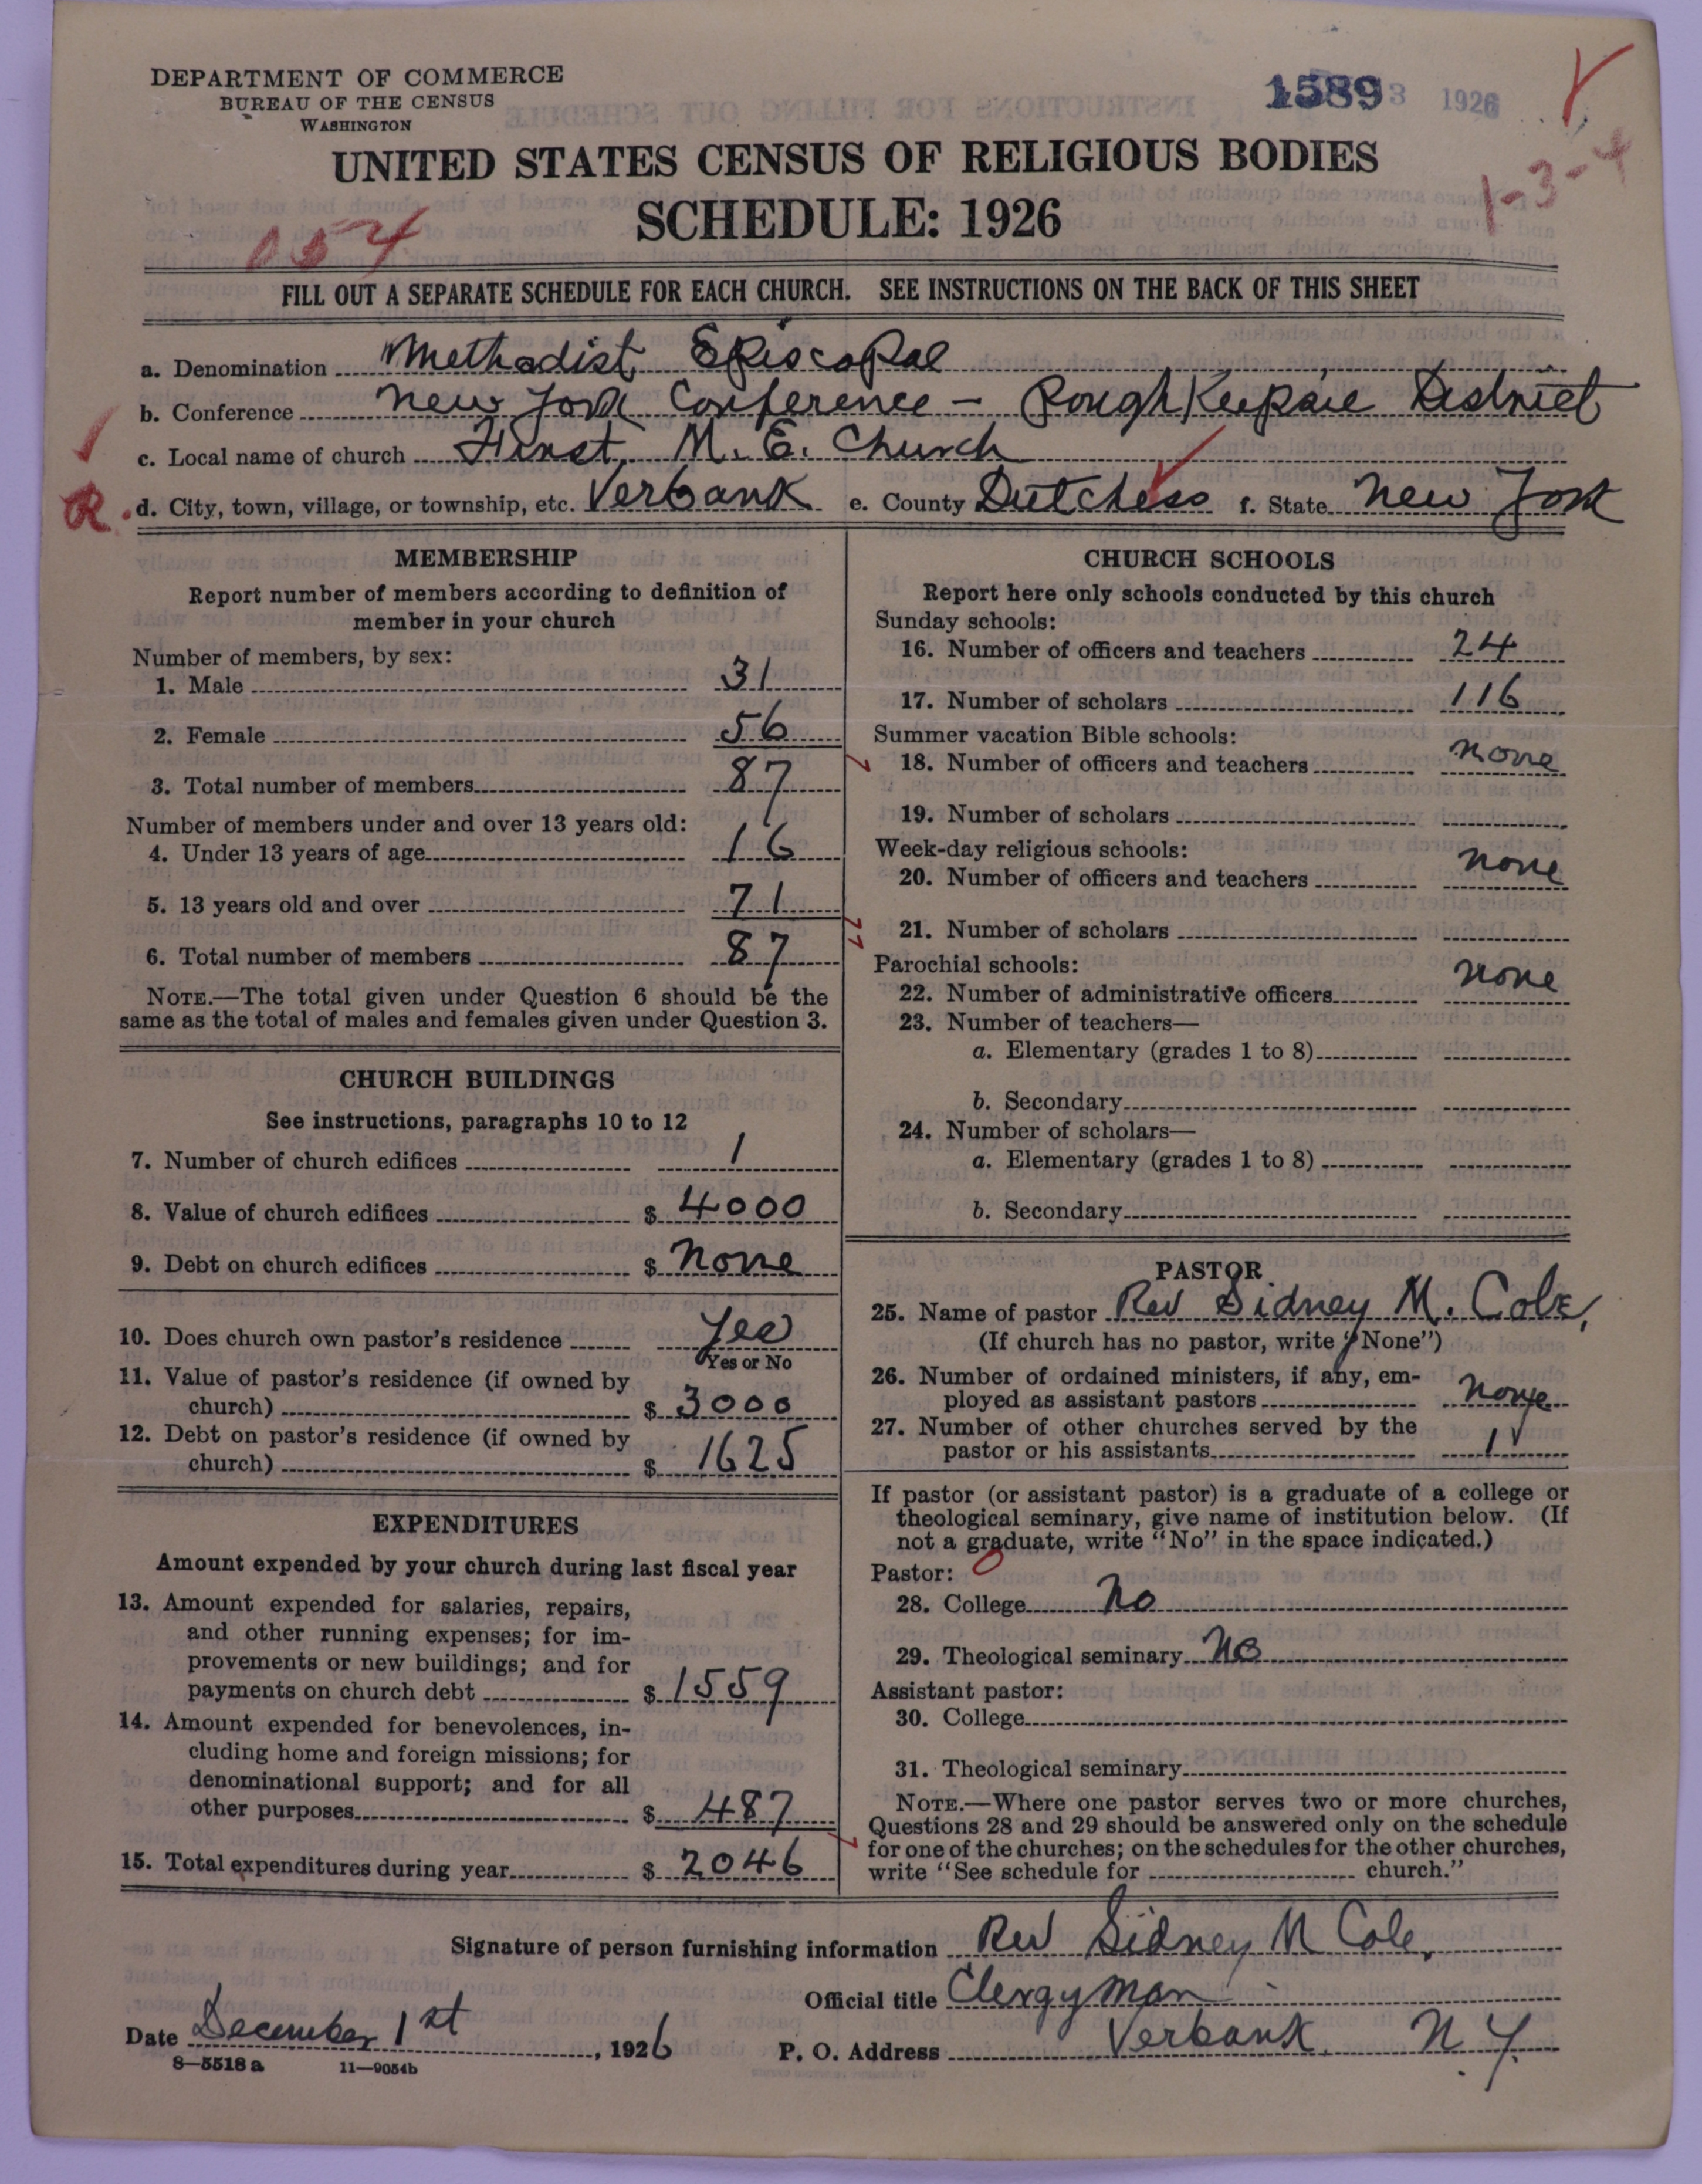 DEPARTMENT OF COMMERCE
BUREAU OF THE CENSUS
WASHINGTON
1589 3 1926
UNITED STATES CENSUS OF RELIGIOUS BODIES
1-3-4
SCHEDULE: 1926
054
FILL OUT A SEPARATE SCHEDULE FOR EACH CHURCH. SEE INSTRUCTIONS ON THE BACK OF THIS SHEET
a. Denomination Methodist Episcopal
b. Conference New York Conference - Poughkeepsie District
c. Local name of church First M. E. Church
R. d. City, town, village, or township, etc. Verbank e. County Dutchess f. State New York
MEMBERSHIP
Report number of members according to definition of
member in your church
Number of members, by sex:
1. Male 31
2. Female 56
3. Total number of members 87
Number of members under and over 13 years old:
4. Under 13 years of age 16
5. 13 years old and over 71
6. Total number of members 87
NOTE.—The total given under Question 6 should be the
same as the total of males and females given under Question 3.
CHURCH BUILDINGS
See instructions, paragraphs 10 to 12
7. Number of church edifices 1
8. Value of church edifices $ 4000
9. Debt on church edifices $ None
10. Does church own pastor's residence Yes
Yes or No
11. Value of pastor's residence (if owned by
church) $ 3000
12. Debt on pastor's residence (if owned by
church) $ 1625
EXPENDITURES
Amount expended by your church during last fiscal year
13. Amount expended for salaries, repairs,
and other running expenses; for im-
provements or new buildings; and for
payments on church debt $ 1559
14. Amount expended for benevolences, in-
cluding home and foreign missions; for
denominational support; and for all
other purposes $ 487
15. Total expenditures during year $ 2046
CHURCH SCHOOLS
Report here only schools conducted by this church
Sunday schools:
16. Number of officers and teachers 24
17. Number of scholars 116
Summer vacation Bible schools:
18. Number of officers and teachers none
19. Number of scholars
Week-day religious schools:
20. Number of officers and teachers none
21. Number of scholars
Parochial schools:
22. Number of administrative officers none
23. Number of teachers—
a. Elementary (grades 1 to 8)
b. Secondary
24. Number of scholars—
a. Elementary (grades 1 to 8)
b. Secondary
PASTOR
25. Name of pastor Rev Sidney M. Cole,
(If church has no pastor, write "None")
26. Number of ordained ministers, if any, em-
ployed as assistant pastors none
27. Number of other churches served by the
pastor or his assistants 1
If pastor (or assistant pastor) is a graduate of a college or
theological seminary, give name of institution below. (If
not a graduate, write "No" in the space indicated.)
Pastor:
28. College No
29. Theological seminary No
Assistant pastor:
30. College
31. Theological seminary
NOTE.—Where one pastor serves two or more churches,
Questions 28 and 29 should be answered only on the schedule
for one of the churches; on the schedules for the other churches,
write "See schedule for church."
Signature of person furnishing information Rev Sidney M Cole,
Official title Clergyman
Date December 1st, 1926
P. O. Address Verbank N. Y.
8—5518 a 11—9054b